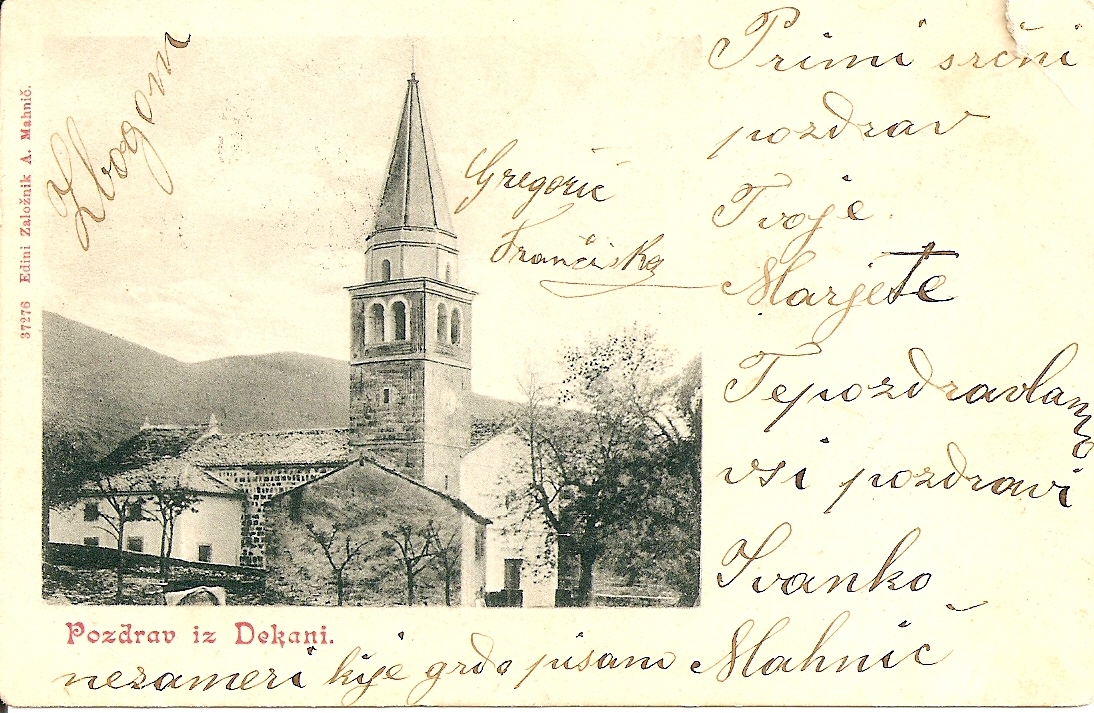 Zbogom
37276 Edini Založnik A. Mahnič.
Gregorič
Frančiska
Primi srčni
pozdrav
Tvoje
Marjete
Te pozdravlamo
vsi pozdravi
Ivanko
Mahnič
Pozdrav iz Dekani.
nezameri kije grdo pisano